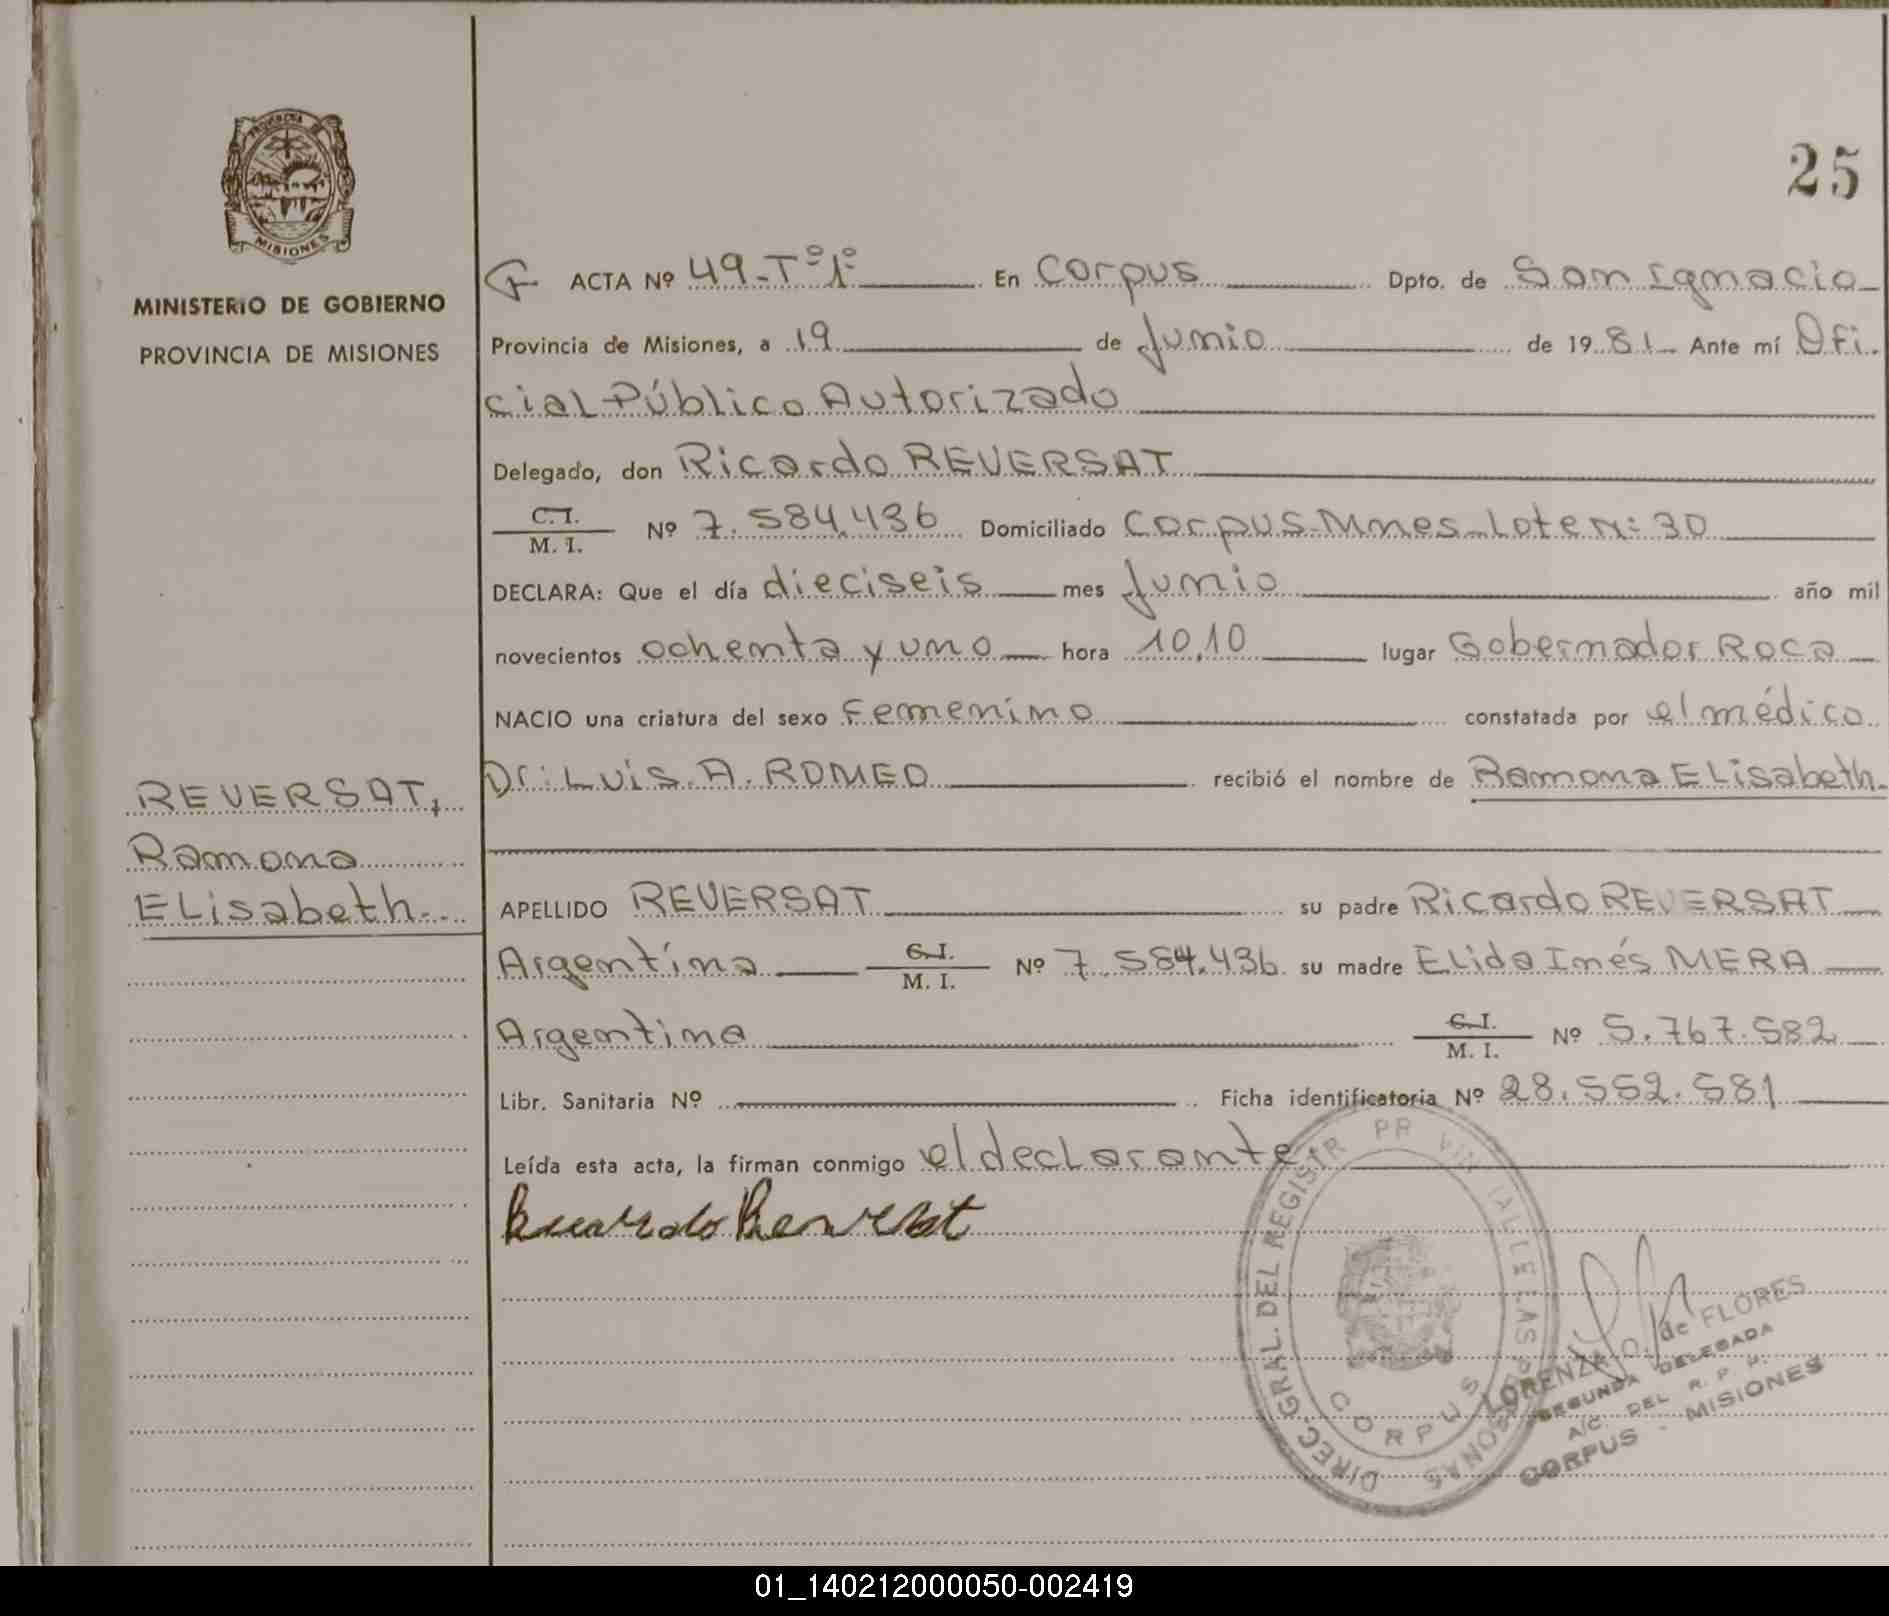 25
PROVINCIA DE
MISIONES
MINISTERIO DE GOBIERNO
PROVINCIA DE MISIONES
F ACTA Nº 49-Tº1º En Corpus Dpto. de San Ignacio
Provincia de Misiones, a 19 de Junio de 1981 Ante mí Ofi-
cial Público Autorizado
Delegado, don Ricardo REVERSAT
C.I. / M. I. Nº 7.584.436 Domiciliado Corpus-Mnes-Lote N: 30
DECLARA: Que el día dieciseis mes Junio año mil
novecientos ochenta y uno hora 10,10 lugar Gobernador Roca
NACIO una criatura del sexo Femenino constatada por el médico
Dr: Luis. A. ROMEO recibió el nombre de Ramona ELisabeth.
REVERSAT,
Ramona
ELisabeth.
APELLIDO REVERSAT su padre Ricardo REVERSAT
Argentina C.I. / M. I. Nº 7.584.436 su madre ELida Inés MERA
Argentina C.I. / M. I. Nº 5.767.582
Libr. Sanitaria Nº Ficha identificatoria Nº 28.552.581
Leída esta acta, la firman conmigo el decLarante
Ricardo Reversat
DIREC. GRAL. DEL REGISTR PR VIN IAL DE LAS PERSONAS
CORPUS
LORENZA O. de FLORES
SEGUNDA DELEGADA
A/C. DEL R. P.
CORPUS - MISIONES
01_140212000050-002419